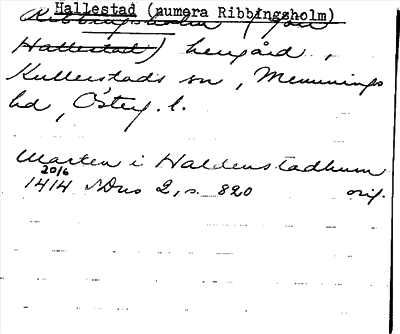 Hallestad (numera Ribbingsholm)
Ribbingsholm (förr
Hallestad) herrgård,
Kullerstads sn, Memmings
hd, Österg. l.
Marten i Haldenstadhum
20/6
1414 SDns 2, s. 820 orig.